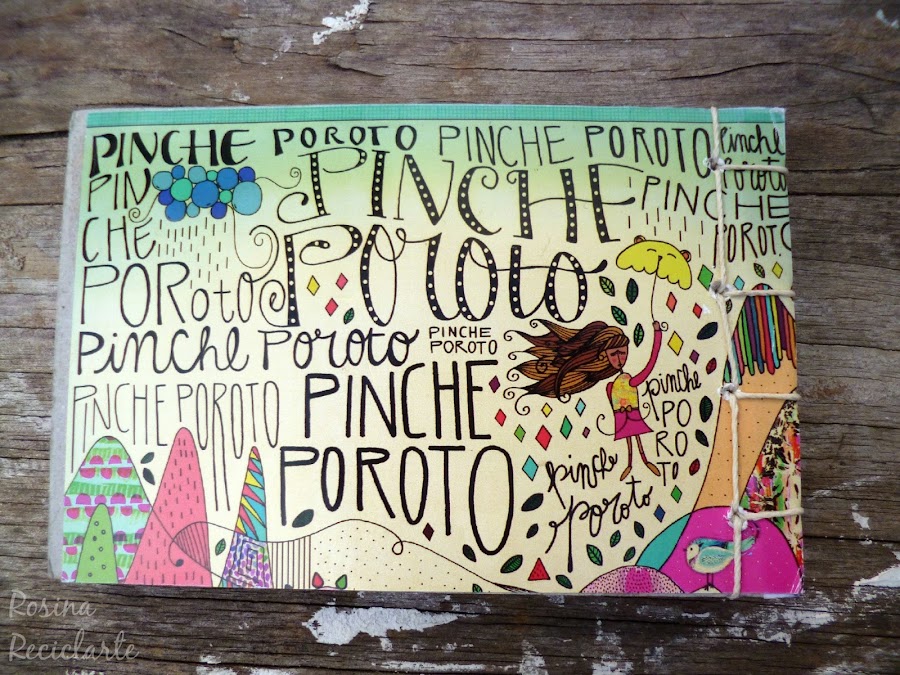 PINCHE POROTO PINCHE POROTO pinche poroto
PIN
CHE
POROTO
PINCHE
POROTO
PINCHE
POROTO.
Pinche Poroto
PINCHE
POROTO
PINCHE POROTO
PINCHE
POROTO
pinche
PO
RO
TO
pinche
poroto
Rosina
Reciclarte